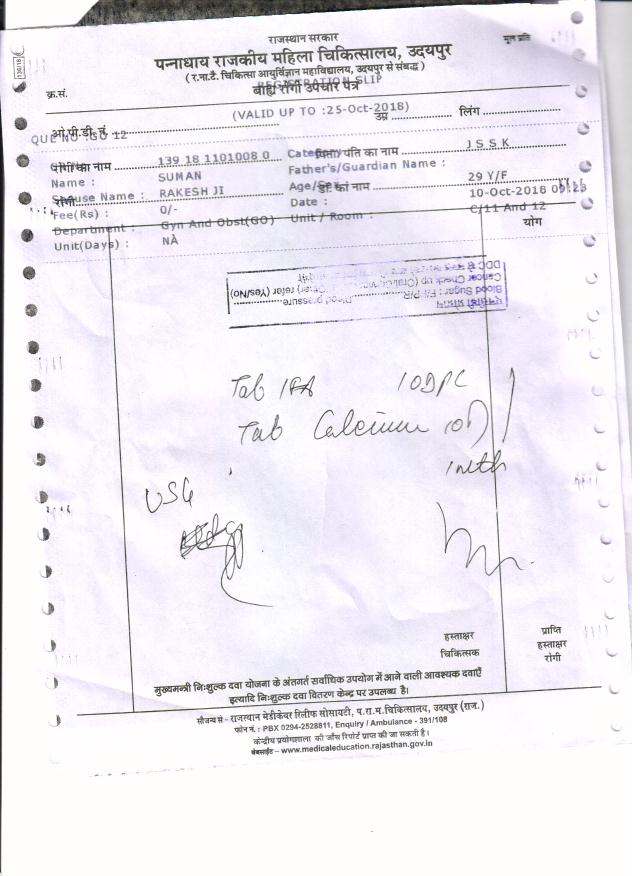 राजस्थान सरकार
मूल प्रति
130/18
पन्नाधाय राजकीय महिला चिकित्सालय, उदयपुर
( र.ना.टै. चिकित्सा आयुर्विज्ञान महाविद्यालय, उदयपुर से संबद्ध )
REGISTRATION SLIP
बहि रोगी उपचार पत्र
क्र.सं.
(VALID UP TO :25-Oct-2018)
ओ.पी.डी. नं. उम्र लिंग
QUE NO :GO 12
रोगी का नाम 139 18 1101008 0 Category पिता/पति का नाम J S S K
Name : SUMAN Father's/Guardian Name :
Spouse Name : RAKESH JI Age/Sex का नाम 29 Y/F
Fee(Rs) : 0/- Date : 10-Oct-2018 09:23
Department : Gyn And Obst(GO) Unit / Room : C/11 And 12
Unit(Days) : NA योग
Blood Sugar : F/PP/R Blood pressure
Cancer Check up refer (Yes/No)
Tab IFA 1OD PC
Tab Calcium 1OD
1 mth
USG
हस्ताक्षर
चिकित्सक
प्राप्ति
हस्ताक्षर
रोगी
मुख्यमन्त्री निःशुल्क दवा योजना के अंतगर्त सर्वाधिक उपयोग में आने वाली आवश्यक दवाएँ
इत्यादि निःशुल्क दवा वितरण केन्द्र पर उपलब्ध है।
सौजन्य से - राजस्थान मेडीकेयर रिलीफ सोसायटी, प.रा.म.चिकित्सालय, उदयपुर (राज.)
फोन नं. : PBX 0294-2528811, Enquiry / Ambulance - 391/108
केन्द्रीय प्रयोगशाला की जाँच रिपोर्ट प्राप्त की जा सकती है।
बेबसाईट – www.medicaleducation.rajasthan.gov.in